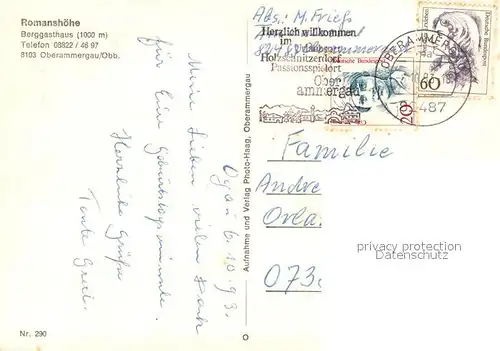 Romanshöhe
Berggasthaus (1000 m)
Telefon 08822 / 46 97
8103 Oberammergau/Obb.
Ogau 6.10.93.
Meine Lieben vielen Dank
für Eure Geburtstagswünsche.
Herzliche Grüße
Tante Greti
Nr. 290
Aufnahme und Verlag Photo-Haag, Oberammergau
Abs: M. Frieß
82487 Oberammergau
Herzlich willkommen
im
Holzschnitzerdorf
Passionsspielort
Ober
ammergau
OBERAMMERGAU
82487
Deutsche Bundespost
20
Deutsche Bundespost
60
Familie
Andre
Orla.
073
privacy protection
watermark